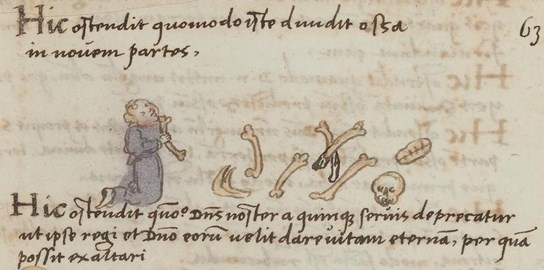 Hic ostendit quomodo iste diuidit ossa
in nouem partes,
63
Hic ostendit quōo Dn̄s noster a quinqꝫ seruis deprecatur
ut ipse regi et Dn̄o eorū uelit dare uitam eternā, per quā
possit exaltari